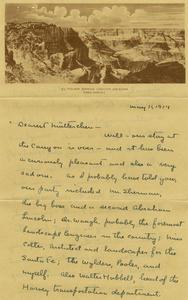 EL TOVAR, GRAND CANYON, ARIZONA
May 11, 1914
Dearest Mütterchen –
Well – our stay at
the Canyon is over – and it has been
a curiously pleasant and also a very
sad one. As I probably have told you,
our party included Mr. Sherman,
the big boss and a second Abraham
Lincoln; Dr. Waugh, probably the foremost
landscape engineer in the country; Miss
Colter, Architect and landscaper for the
Santa Fe; the Wylders, Pooler, and
myself. Also Walter Hubbell, head of the
Harvey transportation department.